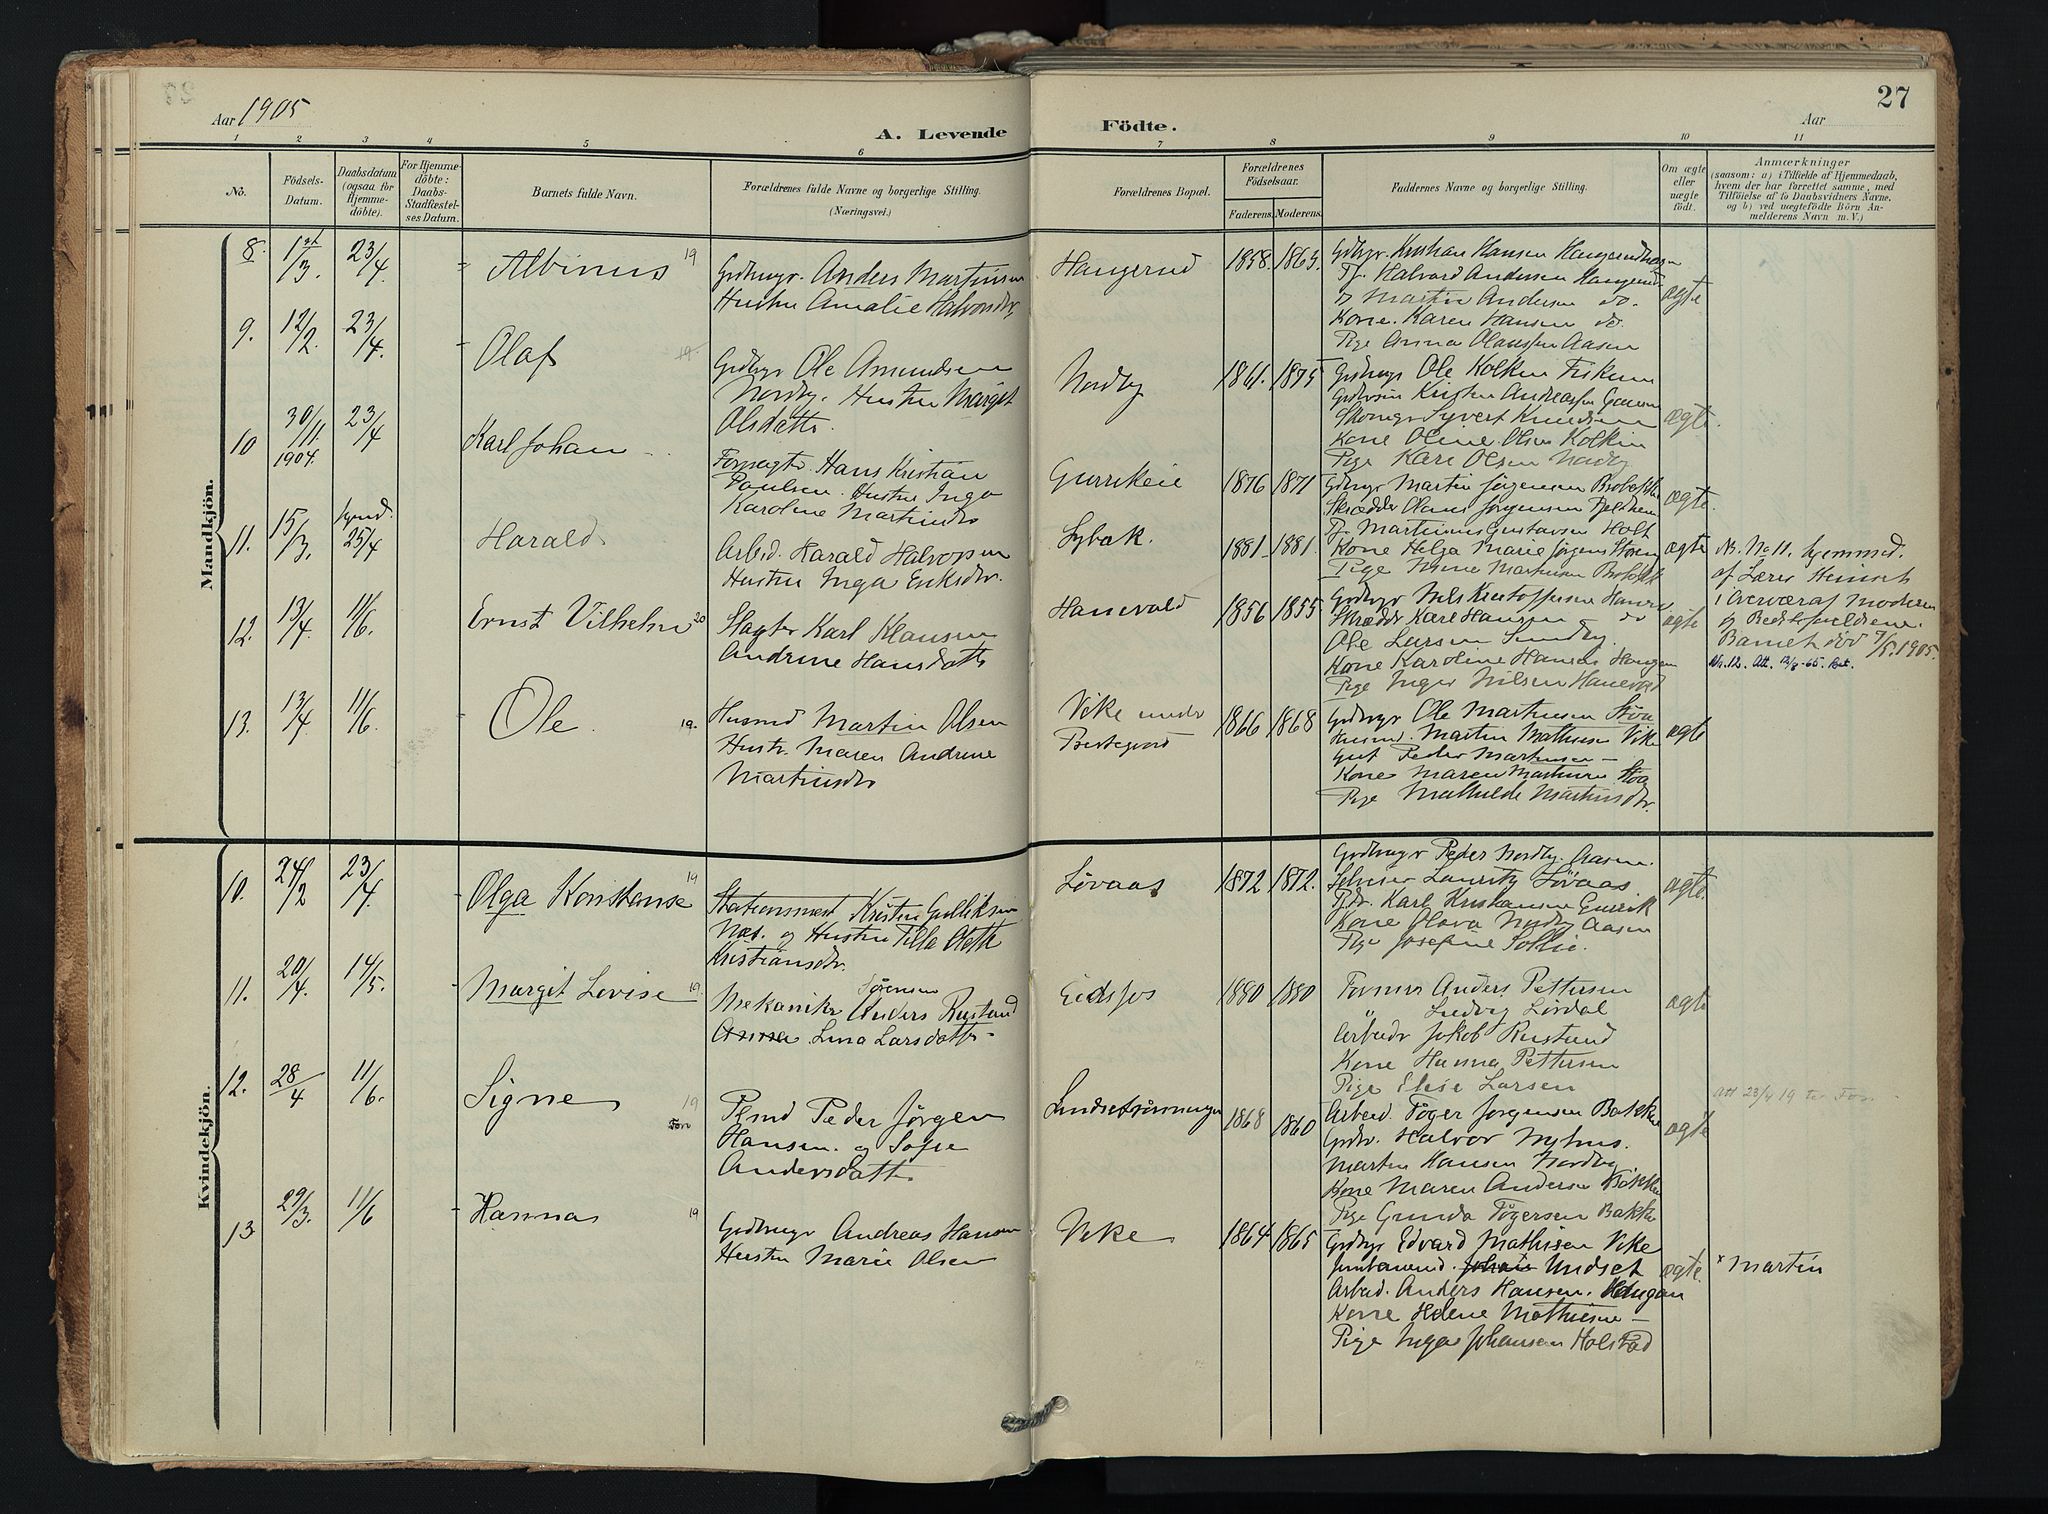 27
Aar 1905
A. Levende Födte.
Aar
1 2 3 4 5 6 7 8 9 10 11
No.
Födsels-Datum.
Daabsdatum (ogsaa for Hjemme-döbte).
For Hjemme-döbte: Daabs-Stadfæstel-ses Datum.
Barnets fulde Navn.
Forældrenes fulde Navne og borgerlige Stilling.
(Næringsvei.)
Forældrenes Bopæl.
Forældrenes Födselsaar.
Faderens. Moderens.
Faddernes Navne og borgerlige Stilling.
Om ægte eller uægte födt.
Anmærkninger
(saasom: a) i Tilfælde af Hjemmedaab,
hvem der har forrettet samme, med
Tilföielse af to Daabsvidners Navne,
og b) ved uægtefödte Börn An-
melderens Navn m. V.)
Mandkjön.
8. 1/3. 23/4. - Albinus 19
Grdbrugr. Anders Martinsen
Hustru Amalie Halvorsdtr,
Haugerud 1858. 1863.
Kristian Hansen
Halvard Andersen Haugerud
Martin Andersen do.
Kone. Karen Hansen do
Pige Anna Olaussen Aasen
ægte
9. 12/2. 23/4. - Olaf 19.
Grdbrgr Ole Amundsen
Nordby. Hustru Marget
Olsdattr.
Nordby 1861. 1875
Grdbrugr Ole Kolkin Fiskum
Syvert Knudsen
Kone Oline Olsen Kolkin
Pige Kari Olsen Nordby
ægte.
10 30/11. 1904. 23/4 Karl Johan
Forpagtr. Hans Kristian
Paulsen. Hustru Inga
Karoline Martinsdtr
Gurrikeie 1876 1871
Grdbrugr Martin Jørgensen
Skrædder Olaus Jørgensen
Martinius Gustavsen Holt
Kone Helga Marie Jørgens
Pige
ægte.
11. 15/3. hjmd. 25/4 Harald
Arbeid. Harald Halvorsen
Hustru Inga Eriksdtr.
Lybæk. 1881. 1881.
ægte
Nr. No 11. hjemmed.
af Lærer
i Overvær af Moderen
og Bedsteforældrene.
Barnet död 7/5. 1905.
12. 13/4. 11/6. Ernst Vilhelm 20
Slagter Karl Klausen
Andrine Hansdattr
Hanevald 1856 1855
Grdbrugr Nils Kristoffersen
Skræddr Karl Hansen do
Ole Larsen Sundby.
Kone Karoline Hansen Haugen
Pige Inger Nilsen Hanevald
ægte
Nr. 12. Att. 12/8-65.
13. 13/4 11/6. Ole. 19.
Husmd Martin Olsen
Hustr. Maren Andrine
Martinsdtr
Vike under
Prestegaard
1866 1868
Grdbrugr Ole Martinsen Støa
Husmd. Martin Mathisen Vike
Gut Peder Martinsen -
Kone Maren Martinsen Støa
Pige Mathilde Martinsdtr.
ægte
Kvindekjön.
10. 24/2 23/4. - Olga Konstanse 19
Stationsmest Kristen Gulliksen
Næs. og Hustru Tilla Oleth
Kristiansdtr.
Løvaas 1872 1872.
Grdbrugr Peder Nordby. Aasen.
Lauritz Løvaas.
Karl Kristiansen Gurrik
Kone Olava Nordby Aasen
Pige Josefine Sollie.
ægte.
11. 20/4. 14/5. - Margit Lovise 19.
Sørensen
Mekanikr Anders Rustand
Anna Lina Larsdattr.
Eidsfos 1880 1880
Former Anders Pettersen
" Ludvig Lørdal
Arbeidr Jakob Rustand
Kone Hanna Pettersen
Pige Elise Larsen
ægte
12. 28/4 11/6. - Signe 19
Peder Jørgen
Hansen. og Sofie
Andersdatt.
1868 1860
Arbeid. Tøger Jørgensen Bakke
Grdbr. Halvor Nyhus.
Martin Hansen Nordby
Kone Maren Andersen Bakke
Pige Gunda Tøgersen Bakke
ægte
Att 23/4 19 ter For.
13 29/3. 11/6 - Hanna 19
Grdbrugr Andreas Hansen
Hustru Marie Olsen
Vike 1864 1865
Grdbrgr Edvard Mathisen Vike
Johan Undset
Arbeid. Anders Hansen. Haugan
Kone Helene Mathisen -
Pige Inga Johansen Holstad
ægte.
x Martin